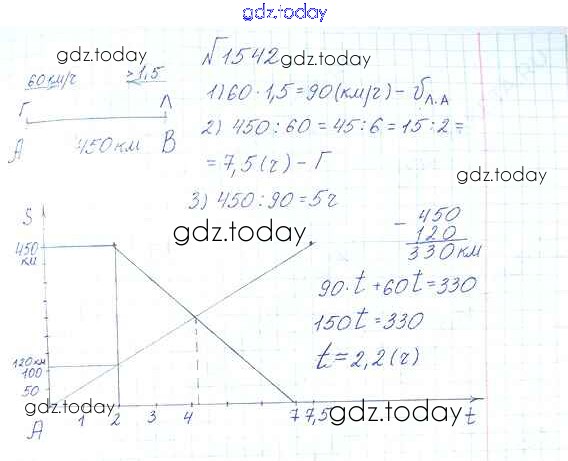 gdz.today
gdz.today
№1542
gdz.today
60км/ч
>1,5
1) 60·1,5=90(км/ч) – υл.а
Г
Л
2) 450:60=45:6=15:2=
А
450км
В
=7,5(ч) – Г
gdz.today
3) 450:90=5ч
S
gdz.today
450
км
- 450
120
330км
90·t+60t=330
150t=330
t=2,2(ч)
120км
100
50
gdz.today
А
1
2
3
4
7
7,5
gdz.today
t